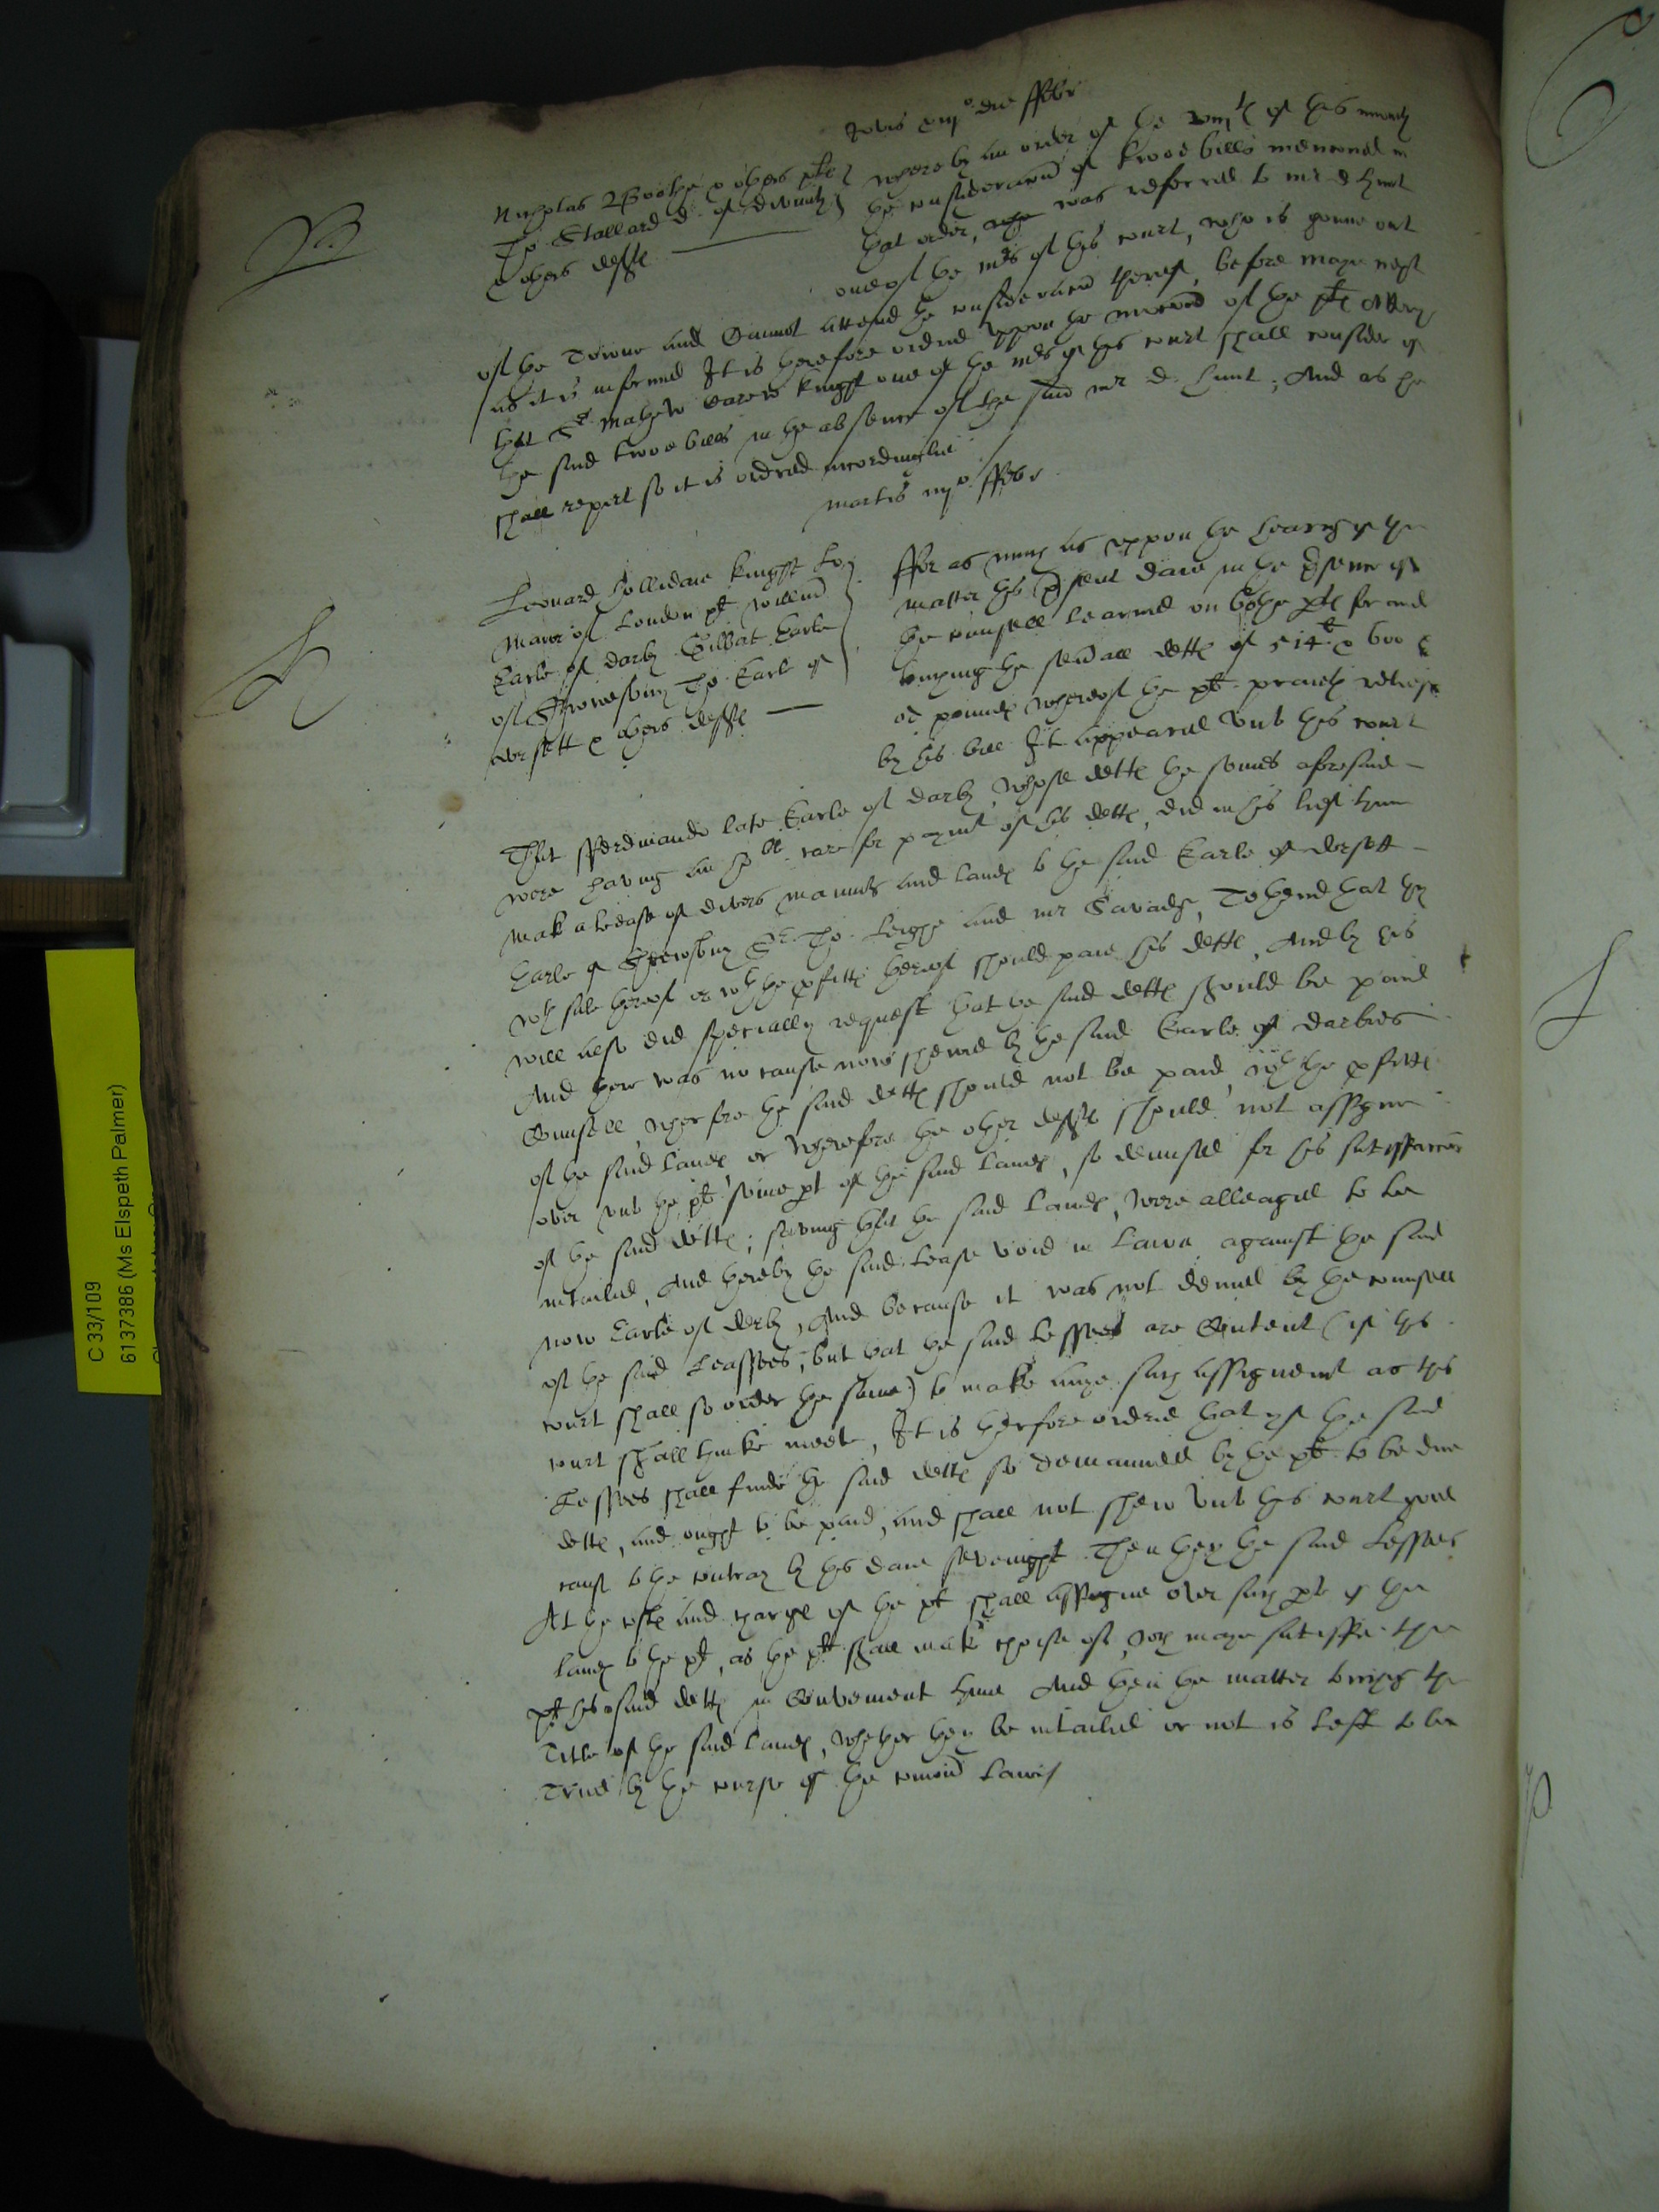 Jovis die ffebr
B
Nicholas Boothe & others plts
Tho Stallard d of divinity
& others defts
Where by an order of the of this month
the consideracon of twoe bills menconed in
that order, was referred to mr d Hunt
one of the mrs of this court, who is gonne out
of the Towne and Cannot attend the consideracon thereof, before maye next
as it is informed It is therefore ordred uppon the mocion of the plts Attorn
that Sr Mathew Carew knight one of the mrs of this court shall consider of
the said twoe bills in the absence of the said mr d. Hunt, And as he
shall report so it is ordred accordinglie
Martis ffebr
H
Leonard Hollidaie knight Lo
Maior of London plt Willm
Earle of Darby Gilbart Earle
of Shrowesbury Tho Earle of
dorsett & others defts
ffor as much as uppon the hearing of the
matter this present daie in the presence of
the counsell learned on bothe pts for and
touching the sevall detts of 514 & 600
od pounds whereof the plt praieth reliefe
by his bill It appeared unto this court
That fferdinando late Earle of Darby, whose detts the somes aforesaid
were having an care for paymt of his detts, did in his lief time
make a Lease of divers mannors and lands to the said Earle of dorsett
Earle of Shrewsbury Sr Tho Leighe and mr Savadge, To thend that they
wth sale thereof or wth the pfitts thereof should paie his detts, And by his
will also did specially request that the said detts should be paid
And there was no cause nowe shewed by the said Earle of Darbies
Counsell, wherfore the said detts should not be paid, wth the pfitts
of the said lands, or wherefore the other defts should not assigne
over unto the plt some pt of the said lands, so demised for his satisfaccon
of the said detts; saving that the said lands, were alleaged to be
intailed, And thereby the said Lease void in Lawe against the said
now Earle of Derby, And because it was not denied by the counsell
of the said Leassees, but that the said Lessees are Content (if this
court shall so order the same) to make anye such assignemt as this
court shall thinke meete, It is therfore ordred that yf the said
Lessees shall finde the said detts so demaunded by the plt to be due
detts, and ought to be paid, and shall not shew unto this court good
cause to the contrary by this daie sevenight Then they the said Lessees
At the costs and charge of the plt shall assigne over such pte of the
lands to the plt, as the plt shall make choise of, wch maye satisfie the
plt his said detts in Convenient time And then the matter touching the
Title of the said lands, whether they be intailed or not is left to be
Tried by the course of the comon Lawe
C 33/109
6137386 (Ms Elspeth Palmer)